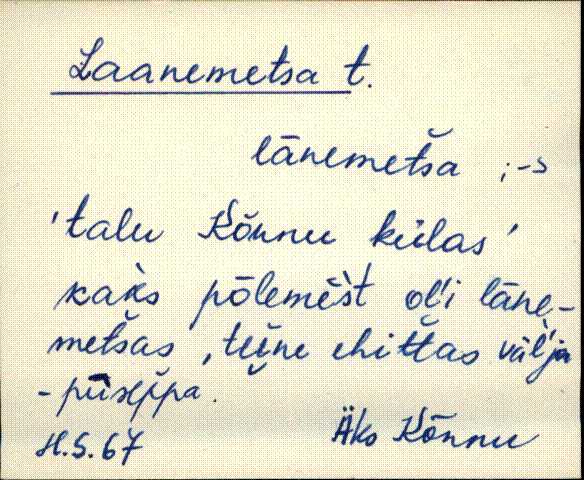 Laanemetsa t.
lānemetša ; -s
'talu Kõnnu külas'
kaks põlemèst oĺi lāne-
metšas, teine ehittas väĺja
H.S.67 Äks Kõnnu